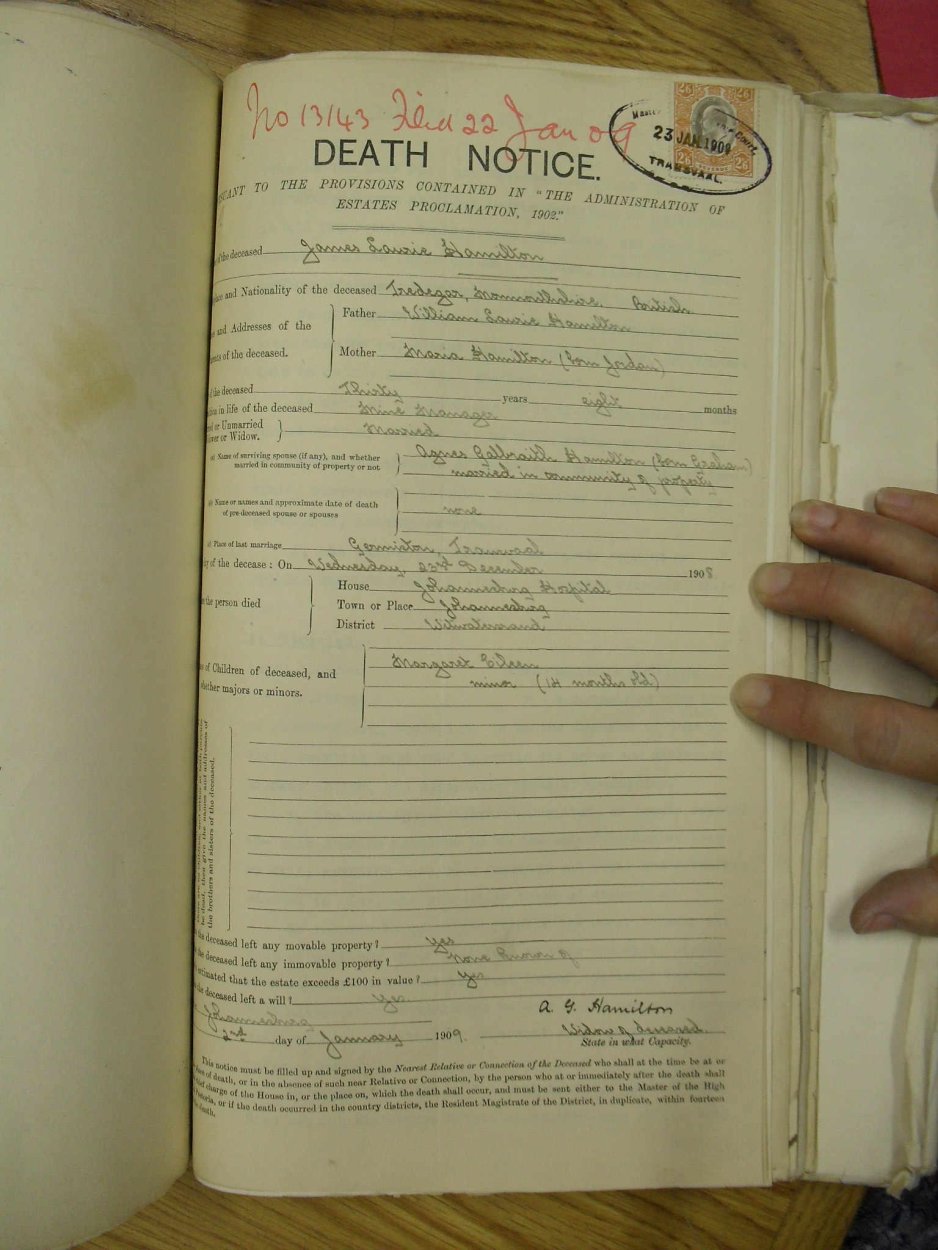 No 13143 Filed 22 Jan 09
Master Court
23 JAN. 1909
TRANSVAAL.
2/6 2/6
2/6 2/6
DEATH NOTICE.
SUANT TO THE PROVISIONS CONTAINED IN "THE ADMINISTRATION OF
ESTATES PROCLAMATION, 1902."
of the deceased James Lawrie Hamilton
and Nationality of the deceased Tredegar, Monmouthshire. British
and Addresses of the
of the deceased.
Father William Lawrie Hamilton
Mother Maria Hamilton (born Jordan)
of the deceased Thirty years eight months
in life of the deceased Mine Manager
or Unmarried
or Widow.
Married
Name of surviving spouse (if any), and whether
married in community of property or not
Agnes Galbraith Hamilton (born Graham)
married in community of property
Name or names and approximate date of death
of pre-deceased spouse or spouses
none
Place of last marriage Germiston, Transvaal
of the decease: On Wednesday, 23rd December 1908
the person died
House Johannesburg Hospital
Town or Place Johannesburg
District Witwatersrand
of Children of deceased, and
whether majors or minors.
Margaret Eileen
minor (14 months old)
be dead, then give the names and addresses of
the brothers and sisters of the deceased.
the deceased left any movable property? yes
the deceased left any immovable property? none known of
estimated that the estate exceeds £100 in value? yes
the deceased left a will? yes
Johannesburg
A. G. Hamilton
2nd day of January 1909.
Widow of deceased.
State in what Capacity.
This notice must be filled up and signed by the Nearest Relative or Connection of the Deceased who shall at the time be at or
of death, or in the absence of such near Relative or Connection, by the person who at or immediately after the death shall
charge of the House in, or the place on, which the death shall occur, and must be sent either to the Master of the High
or if the death occurred in the country districts, the Resident Magistrate of the District, in duplicate, within fourteen
death.